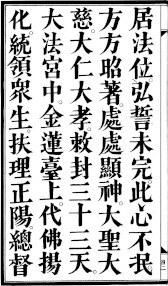 居法位弘誓未完此心不泯
方方昭著處處顯神大聖大
慈大仁大孝敕封三十三天
大法宮中金蓮臺上代佛揚
化統領衆生扶理正陽總督